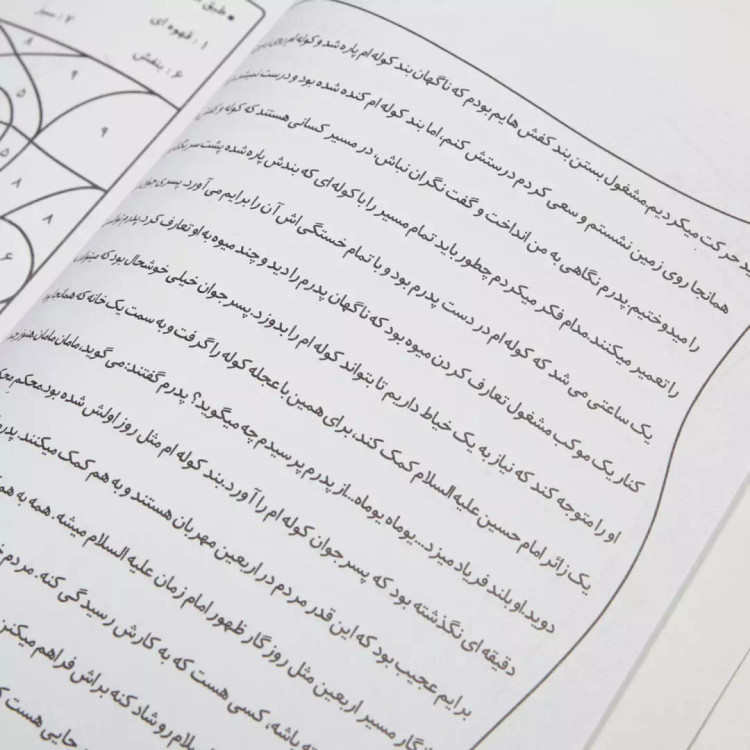 طبق
۱ : قهوه ای
۲ : سبز
۶ : بنفش
۸
۹
۵
۹
۵
۸
۸
۶
حرکت میکردیم.مشغول بستن بند کفش هایم بودم که ناگهان بند کوله ام پاره شد و کوله ام روی
همانجا روی زمین نشستم و سعی کردم درستش کنم، اما بند کوله ام کنده شده بود و درست
را میدوختیم.پدرم نگاهی به من انداخت و گفت نگران نباش، در مسیر کسانی هستند که کوله و
را تعمیر میکنند.مدام فکر میکردم چطور باید تمام مسیر را با کوله ای که بندش پاره شده پشت سر
یک ساعتی می شد که کوله ام در دست پدرم بود و با تمام خستگی اش آن را برایم می آورد. پسری
کنار یک موکب مشغول تعارف کردن میوه بود که ناگهان پدرم را دید و چند میوه به او تعارف کرد.پدرم
او را متوجه کند که نیاز به یک خیاط داریم تا بتواند کوله ام را بدوزد.پسر جوان خیلی خوشحال بود که
یک زائر امام حسین علیه السلام کمک کند، برای همین با عجله کوله را گرفت و به سمت یک خانه که همانجا بود
دوید.او بلند فریاد میزد...یوماه یوماه...از پدرم پرسیدم چه میگوید؟ پدرم گفتند:می گوید،مامان مامان.هنوز
دقیقه ای نگذشته بود که پسر جوان کوله ام را آورد.بند کوله ام مثل روز اولش شده بود.محکم
برایم عجیب بود که این قدر مردم در اربعین مهربان هستند و به هم کمک میکنند.
مسیر اربعین مثل روزگار ظهور امام زمان علیه السلام میشه. همه به
باشه، کسی هست که به کارش رسیدگی کنه. مردم
رو شاد کنه براش فراهم میکنن
جایی هست